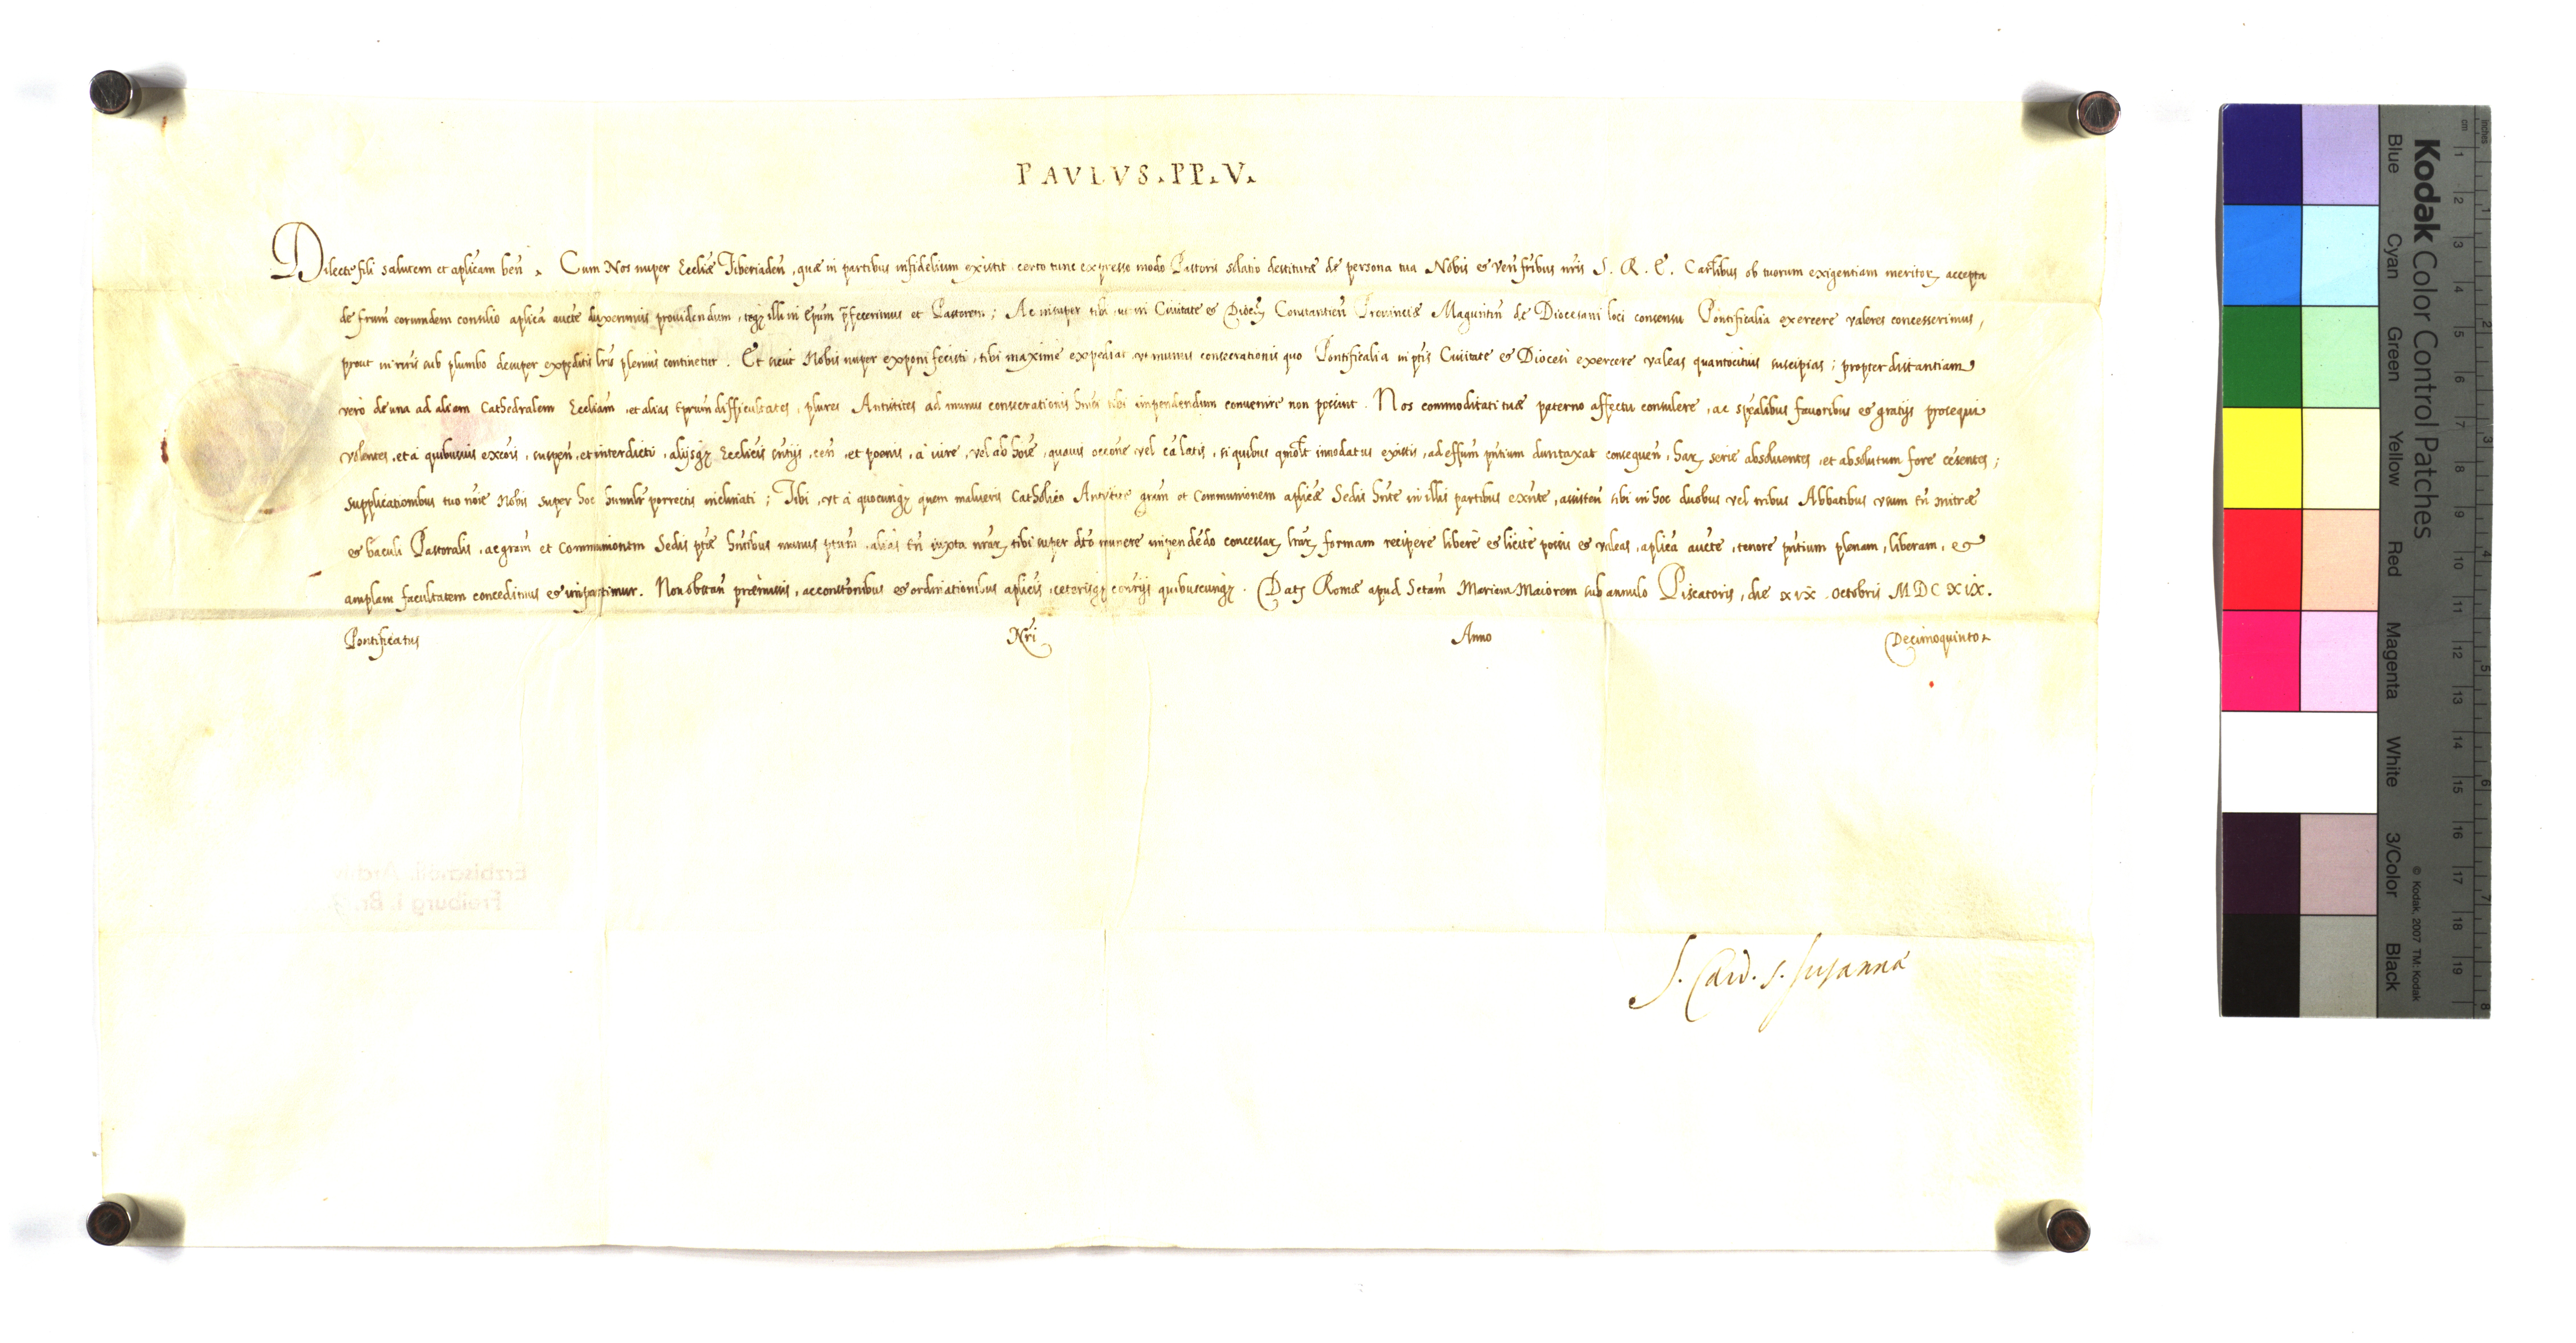 PAULUS.PP.V.
Dilecte fili salutem et aplicam ben. Cum Nos nuper Eccliæ Tiberiaden, quæ in partibus infidelium existit certo tunc expresso modo Pastoris solatio destitutæ de persona tua Nobis et Ven fribus nris S. R. E. Carlibus ob tuorum exigentiam meritor accepta
de frum eorundem consilio aplica aucte duximus providendum, teqz illi in Epum pfecerimus et Pastorem; Ac insuper tibi ut in Civitate et Diocz Constantien Provinciæ Maguntin de Diocesani loci consensu Pontificalia exercere valeres concesserimus,
prout in nris sub plumbo desuper expeditis lris plenius continetur. Et sicut Nobis nuper exponi fecisti, tibi maxime expediat ut munus consecrationis quo Pontificalia in ptis Civitate et Diocesi exercere valeas quantocitius suscipias; propter distantiam
vero de una ad aliam Cathedralem Eccliam, et alias eprum difficultates, plures Antistites ad munus consecrationis hmoi tibi impendendum convenire non possint. Nos commoditati tuæ paterno affectu consulere, ac spealibus favoribus et gratijs prosequi
volentes, et a quibusvis excois, suspen, et interdicti, alijsqz Ecclicis sntijs, cen, et poenis, a iure, vel ab hoie, quavis occone vel ca latis, si quibus qmolt inodatus existis, ad effum pntium duntaxat consequen, har serie absolventes, et absolutum fore cesentes;
supplicationibus tuo noie Nobis super hoc humilr porrectis inclinati; Tibi, ut a quocunqz quem malueris Catholico Antistite gram et Communionem aplicæ Sedis hnte in illis partibus exnte, assisten tibi in hoc duobus vel tribus Abbatibus usum tn mitræ
et baculi Pastoralis, ac gram et Communionem Sedis ptæ hntibus munus ptum, alias tn iuxta nrar tibi super dto munere impendedo concessar lrar formam recipere libere et licite possis et valeas, aplica aucte, tenore pntium plenam, liberam, et
amplam facultatem concedimus et impartimur. Non obstan præmissis, ac constonibus et ordinationibus aplicis, ceterisqz contrijs quibuscunqz. Datz Romæ apud Sctam Mariam Maiorem sub annulo Piscatoris, die xix Octobris MDCXIX.
Pontificatus Nri Anno Decimoquinto
S. Card. S. Susannæ
Erzbischöfl. Archiv
Freiburg i. Br.
Kodak Color Control Patches
Blue Cyan Green Yellow Red Magenta White 3/Color Black
© Kodak, 2007 TM: Kodak
inches 1 2 3 4 5 6 7 8
cm 1 2 3 4 5 6 7 8 9 10 11 12 13 14 15 16 17 18 19